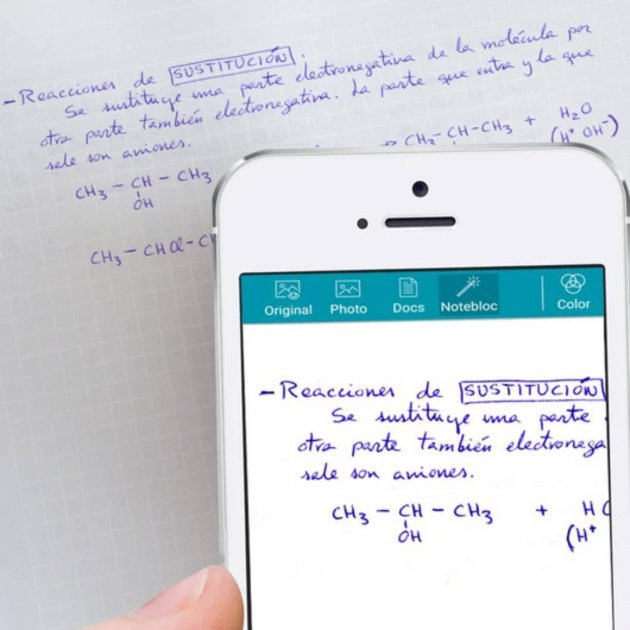 - Reacciones de SUSTITUCIÓN.
Se sustituye una parte electronegativa de la molécula por
otra parte también electronegativa. La parte que entra y la que
sale son aniones.
CH3 - CH - CH3
OH
CH3 - CH - CH3 + H2O
(H+ OH-)
CH3 - CHCl - C
Original Photo Docs Notebloc Color
- Reacciones de SUSTITUCIÓN
Se sustituye una parte
otra parte también electronega
sale son aniones.
CH3 - CH - CH3 + HC
OH (H+